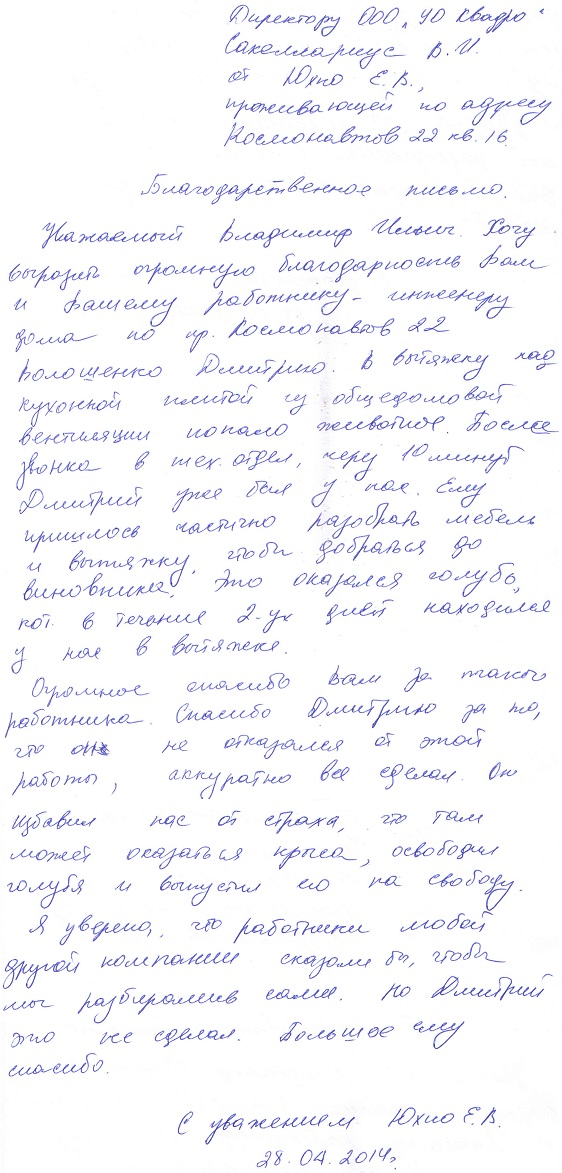 Директору ООО „УО Квадро“
Сакеллариус В.И.
от Юхно Е.В.,
проживающей по адресу
Космонавтов 22 кв. 16.
Благодарственное письмо.
Уважаемый Владимир Ильич. Хочу
выразить огромную благодарность Вам
и Вашему работнику - инженеру
дома по пр. Космонавтов 22
Волошенко Дмитрию. В вытяжку над
кухонной плитой из общедомовой
вентиляции попало животное. После
звонка в тех. отдел, через 10 минут
Дмитрий уже был у нас. Ему
пришлось частично разобрать мебель
и вытяжку, чтобы добраться до
виновника. Это оказался голубь,
кот. в течение 2-ух дней находился
у нас в вытяжке.
Огромное спасибо Вам за такого
работника. Спасибо Дмитрию за то,
что он не отказался от этой
работы, аккуратно все сделал. Он
избавил нас от страха, что там
может оказаться крыса, освободил
голубя и выпустил его на свободу.
Я уверена, что работники любой
другой компании сказали бы, чтобы
мы разбирались сами. Но Дмитрий
это не сделал. Большое ему
спасибо.
С уважением Юхно Е.В.
28.04.2014г.